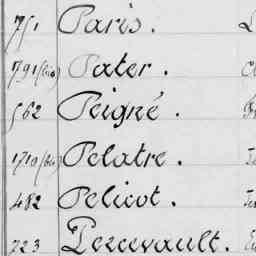 751 Paris.
1791(bis) Pater.
562 Peigné.
1710(bis) Pelatre.
482 Pelicot.
723 Percevault.